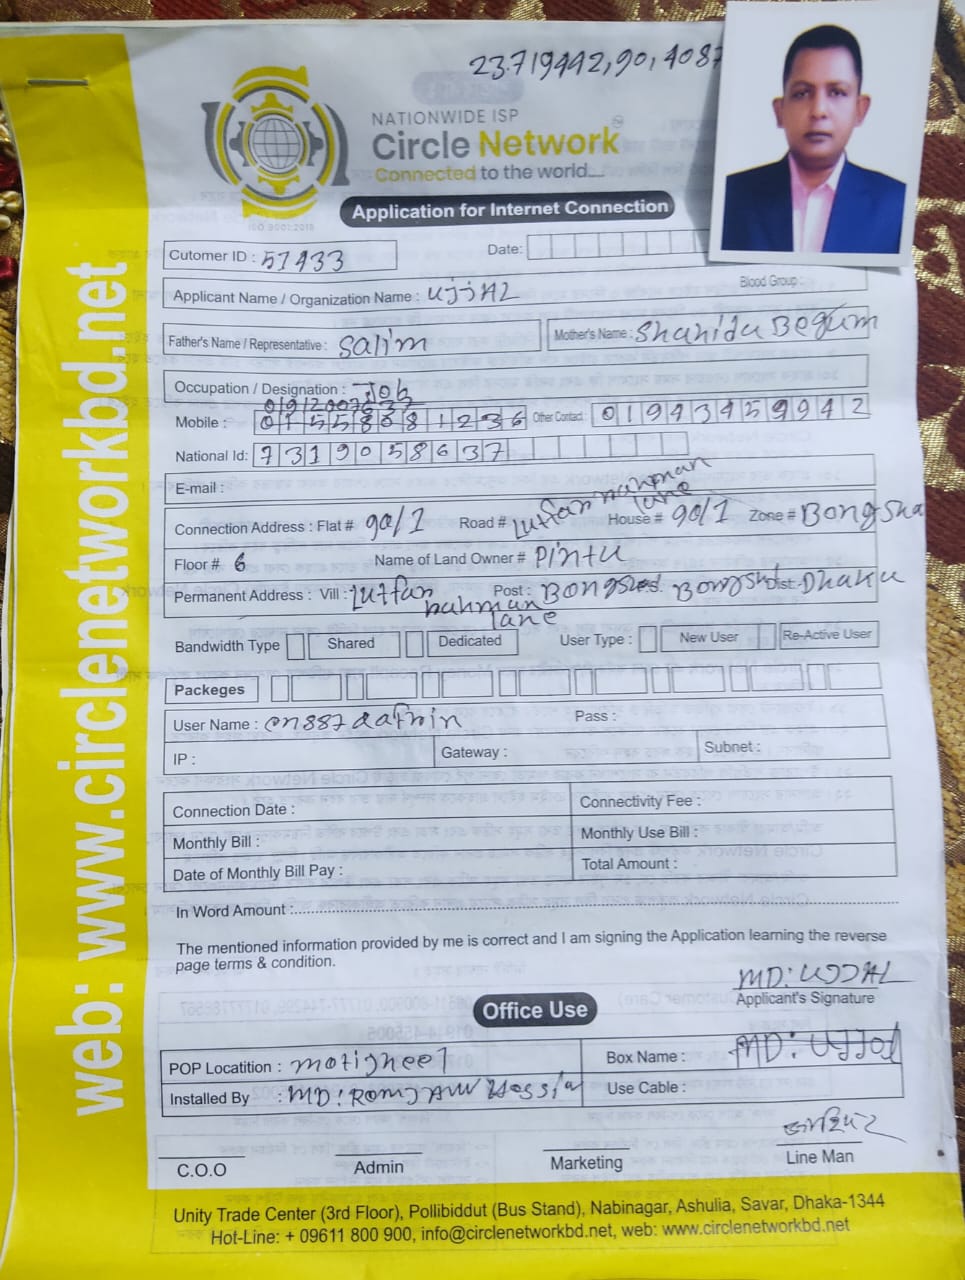 23.719442,90,4087
NATIONWIDE ISP
Circle Network
Connected to the world....
ISO 9001:2015
Application for Internet Connection
Cutomer ID : 57433 Date:
Blood Group :
Applicant Name / Organization Name : UJJAL
Father's Name / Representative : Salim Mother's Name : Shahida Begum
Occupation / Designation : Job
Mobile : 01558081236 Other Contact : 01943459942
National Id: 7319058637
E-mail :
Connection Address : Flat # 90/1 Road # Lutfar Rahman lane House # 90/1 Zone # Bongsha
Floor # 6 Name of Land Owner # Pintu
Permanent Address : Vill : Lutfar Rahman lane Post : Bongshal P.S. Bongshal Dist: Dhaka
Bandwidth Type Shared Dedicated User Type : New User Re-Active User
Packeges
User Name : Pass :
IP : Gateway : Subnet :
Connection Date : Connectivity Fee :
Monthly Bill : Monthly Use Bill :
Date of Monthly Bill Pay : Total Amount :
In Word Amount :
The mentioned information provided by me is correct and I am signing the Application learning the reverse
page terms & condition.
MD: UJJAL
Applicant's Signature
Office Use
POP Locatition : motijheel Box Name : MD: UJJal
Installed By : MD: Romjan Hossin Use Cable :
C.O.O Admin Marketing Line Man
Unity Trade Center (3rd Floor), Pollibiddut (Bus Stand), Nabinagar, Ashulia, Savar, Dhaka-1344
Hot-Line: + 09611 800 900, info@circlenetworkbd.net, web: www.circlenetworkbd.net
web: www.circlenetworkbd.net